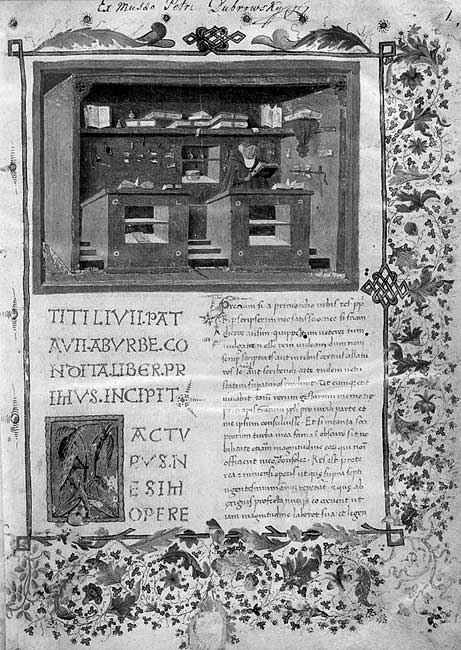 Ex Musæo Petri Dubrowsky
1.
TITI LIVII. PAT
AVII. AB VRBE. CO
NDITA. LIBER. PR
IMVS. INCIPIT
FACTV
RVS. N
E SIM
OPERE
Precium si a primordio urbis res
scripserim nec satis scio nec si sciam
dicere ausim quippe cum veterem tum
esse rem videam dum novi
aut in rebus certius allatu
ros se aut scribendi arte rudem vetu
statem superaturos credunt Ut cumque erit
iuvabit tamen rerum gestarum
pro virili parte et
me ipsum consuluisse. Et si in tanta scri
ptorum turba mea fama in obscuro sit no
bilitate eorum magnitudine
officient meo consoler. Res est prete
rea immensi operis ut que supra septi
gentesimum annum repetatur
profecta initiis eo creverit ut
iam magnitudine laboret sua et legen